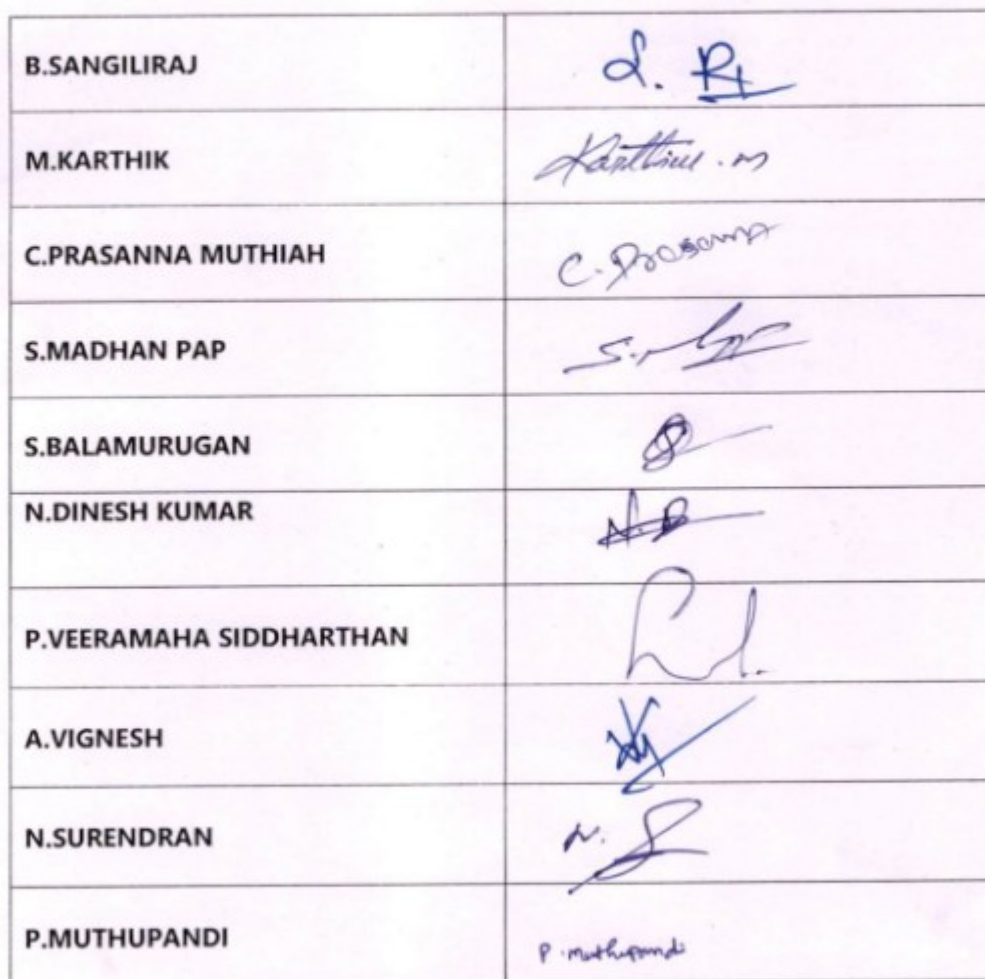 B.SANGILIRAJ
M.KARTHIK Karthick . m
C.PRASANNA MUTHIAH C. Prasanna
S.MADHAN PAP
S.BALAMURUGAN
N.DINESH KUMAR N.D
P.VEERAMAHA SIDDHARTHAN
A.VIGNESH
N.SURENDRAN N. S
P.MUTHUPANDI P. muthupandi